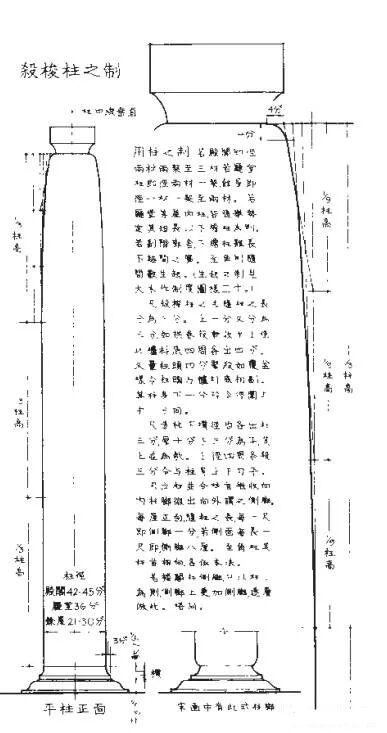 殺梭柱之制
4分
用柱之制 若殿閣即徑
兩材兩栔至三材若廳堂
柱即徑兩材一栔餘屋即
徑一材一栔至兩材。若
廳堂等屋內柱皆隨舉勢
定其短長以下檐柱為則。
若副階廊舍下檐柱雖長
不越間之廣。至角則隨
間數生起。
大木作制度圖樣二十。)
凡殺梭柱之法隨柱之長
分為三分。上一分又分為
三分如栱卷殺
以櫨枓底四周各出四分。
又量柱頭四分緊殺如覆盆
樣令柱頭與櫨枓底相副。
其柱身下一分殺令徑圍
中一分同。
三分厚十分下三分為平其
上並為欹。上徑四周各殺
三分令與柱身上下勻平。
凡立柱並令柱首微收向
內柱腳微出向外謂之側腳。
每屋正面隨柱之長每一尺
即側腳一分若側面每長一
尺即側腳八厘。至角柱其
柱首相向各依本法。
若樓閣柱側腳只以柱
為則側腳上更加側腳逐層
倣此。塔同。
⅓柱高
⅓柱高
⅓柱高
⅓柱高
⅓柱高
柱徑
殿閣42-45分
廳堂36分
餘屋21-30分
3分
櫍
平柱正面
宋画中有此式柱腳